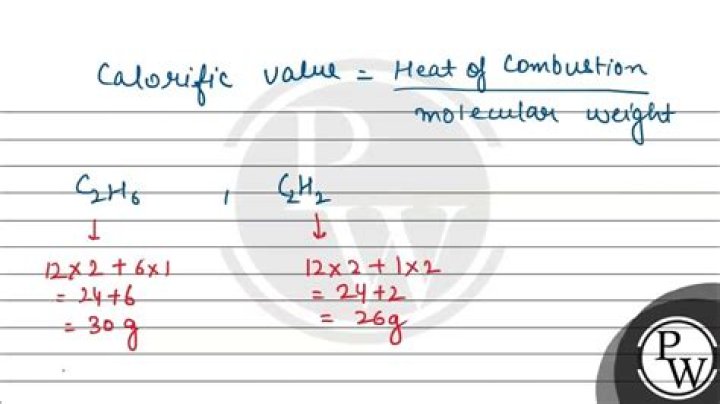 Calorific value = Heat of Combustion
molecular weight
C₂H₆ , C₂H₂
↓ ↓
12×2+6×1 12×2+1×2
= 24+6 = 24+2
= 30 g = 26g
P
W
P
W